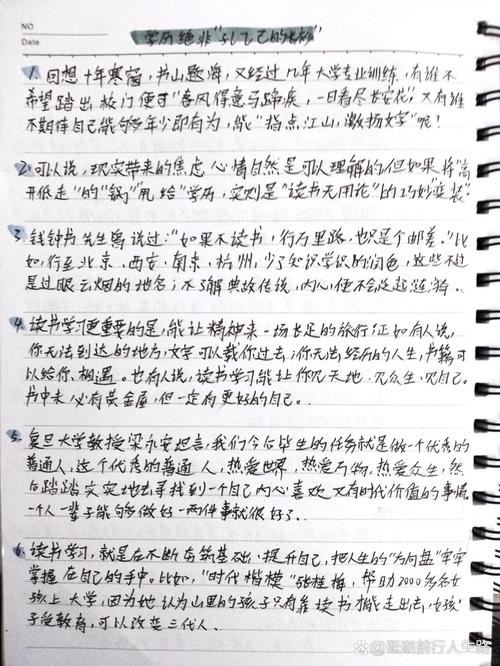 NO
Date
学历绝非“孔乙己的长衫”
1. 回想十年寒窗，书山题海，又经过几年大学专业训练，有谁不
希望踏出校门便可“春风得意马蹄疾，一日看尽长安花”，又有谁
不期待自己能够年少即有为，能“指点江山，激扬文字”呢！
2. 可以说，现实带来的焦虑心情自然是可以理解的但如果将“高
开低走”的“锅”甩给“学历，实则是“读书无用论”的巧妙“变装”
3. 钱钟书先生曾说过：“如果不读书，行万里路，也只是个邮差。”比
如，行至北京、西安、南京、杭州，少了知识学识的润色，这些不过
是过眼云烟的地名；不了解典故传说，内心便不会泛起涟漪。
4. 读书学习更重要的是，能让精神来一场长足的旅行；正如有人说，
你无法到达的地方，文字可以载你过去；你无法经历的人生，书籍可
以给你相遇。也有人说，读书学习能让你见天地、见众生、见自己。
书中未必有黄金屋，但一定有更好的自己。
5. 复旦大学教授梁永安坦言，我们今后毕生的任务就是做一个优秀的
普通人，这个优秀的普通人，热爱世界，热爱万物，热爱众生，然
后踏踏实实地去寻找到一个自己内心喜欢又有时代价值的事情
一个人一辈子能够做好一两件事就很好了。
6. 读书学习，就是在不断夯筑基础、提升自己，把人生的“方向盘”牢牢
掌握在自己的手中。比如，“时代楷模”张桂梅，帮助2000多名女
孩上大学，因为她认为山里的孩子只有靠读书才能走出去，女孩
子受教育，可以改变三代人。